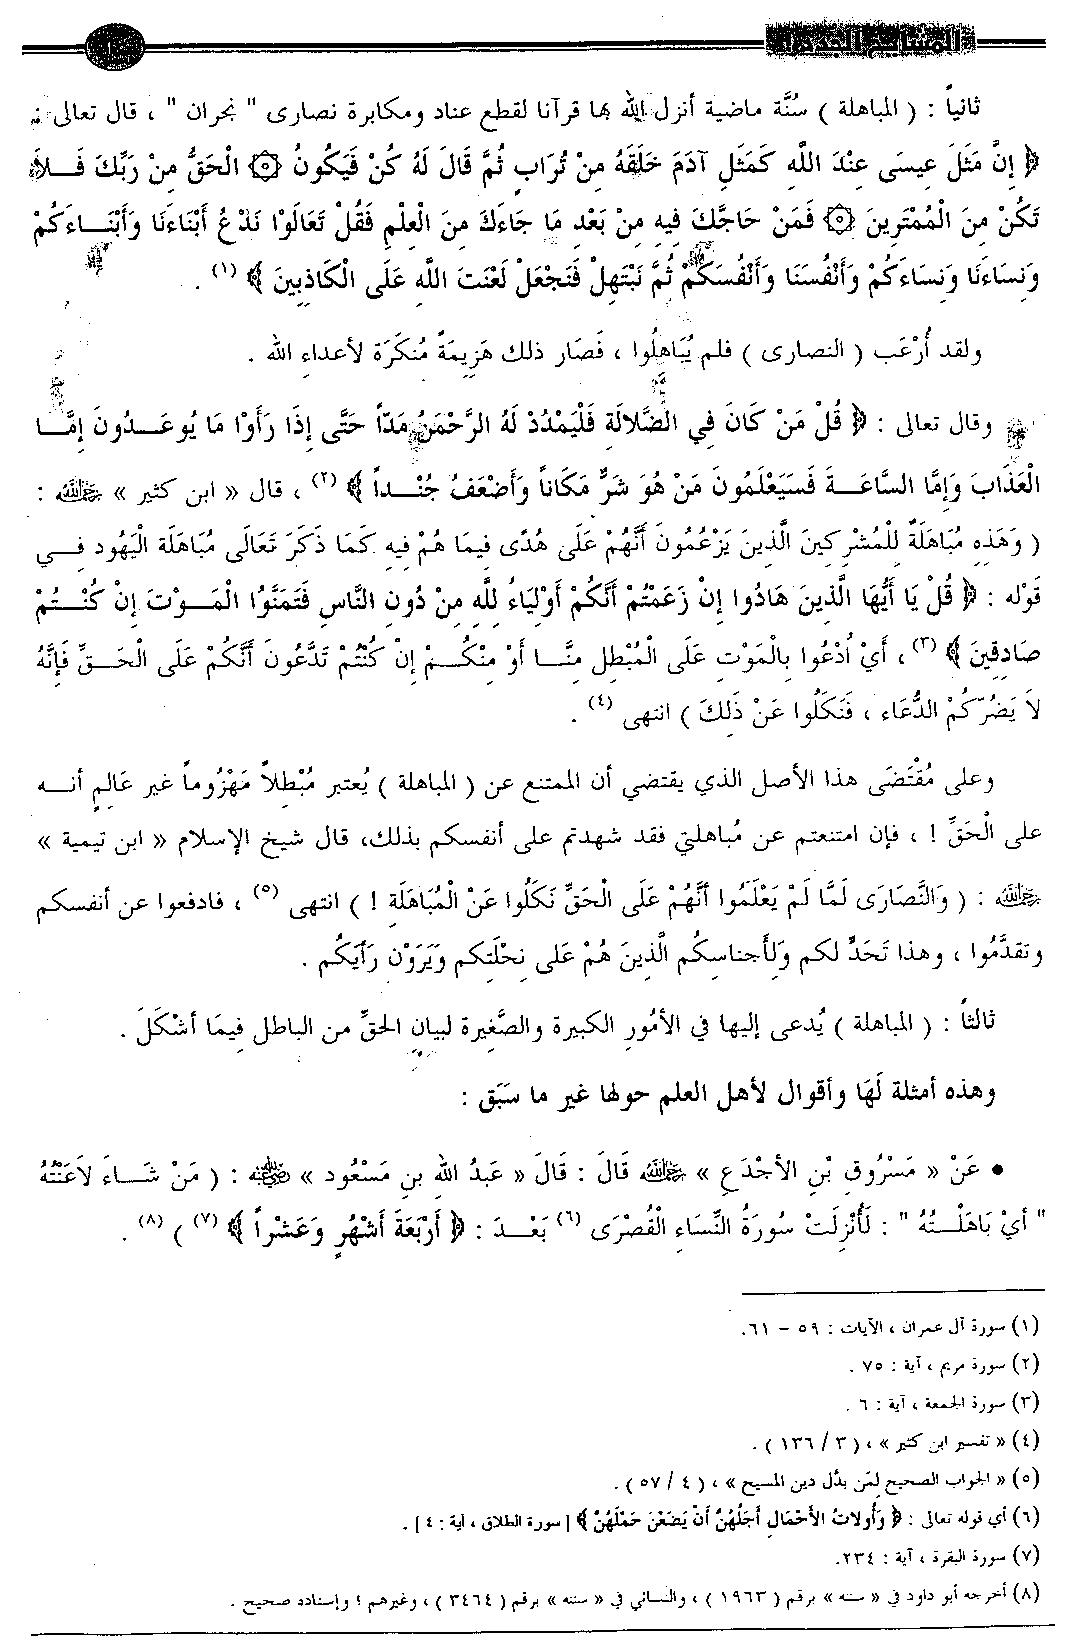 ثانياً : ( المباهلة ) سُنَّة ماضية أنزل الله بها قرآنا لقطع عناد ومكابرة نصارى " نجران " ، قال تعالى :
﴿ إِنَّ مَثَلَ عِيسَى عِنْدَ اللَّهِ كَمَثَلِ آدَمَ خَلَقَهُ مِنْ تُرَابٍ ثُمَّ قَالَ لَهُ كُنْ فَيَكُونُ ۝ الْحَقُّ مِنْ رَبِّكَ فَـلاَ
تَكُنْ مِنَ الْمُمْتَرِينَ ۝ فَمَنْ حَاجَّكَ فِيهِ مِنْ بَعْدِ مَا جَاءَكَ مِنَ الْعِلْمِ فَقُلْ تَعَالَوْا نَدْعُ أَبْنَاءَنَا وَأَبْنَـاءَكُمْ
وَنِسَاءَنَا وَنِسَاءَكُمْ وَأَنْفُسَنَا وَأَنْفُسَكُمْ ثُمَّ نَبْتَهِلْ فَنَجْعَل لَعْنَتَ اللَّهِ عَلَى الْكَاذِبِينَ ﴾ (١) .
ولقد أُرْعَب ( النصارى ) فلم يُبَاهِلُوا ، فَصَار ذلك هَزِيمَةً مُنكَرَة لأعداءِ الله .
وقال تعالى : ﴿ قُلْ مَنْ كَانَ فِي الضَّلاَلَةِ فَلْيَمْدُدْ لَهُ الرَّحْمَنُ مَدّاً حَتَّى إِذَا رَأَوْا مَا يُوعَـدُونَ إِمَّـا
الْعَذَابَ وَإِمَّا السَّاعَـةَ فَسَيَعْلَمُونَ مَنْ هُوَ شَرٌّ مَكَاناً وَأَضْعَفُ جُنْـداً ﴾ (٢) ، قال « ابن كثير » رحمه الله :
( وَهَذِهِ مُبَاهَلَةٌ لِلْمُشْرِكِينَ الَّذِينَ يَزْعُمُونَ أَنَّهُمْ عَلَى هُدًى فِيمَا هُمْ فِيهِ كَمَا ذَكَرَ تَعَالَى مُبَاهَلَةَ الْيَهُود فِـي
قَوْله : ﴿ قُلْ يَا أَيُّهَا الَّذِينَ هَادُوا إِنْ زَعَمْتُمْ أَنَّكُمْ أَوْلِيَاءُ لِلَّهِ مِنْ دُونِ النَّاسِ فَتَمَنَّوُا الْمَـوْتَ إِنْ كُنْـتُمْ
صَادِقِينَ ﴾ (٣) ، أَيْ اُدْعُوا بِالْمَوْتِ عَلَى الْمُبْطِلِ مِنَّـا أَوْ مِنْكُـمْ إِنْ كُنْتُمْ تَدَّعُونَ أَنَّكُمْ عَلَى الْحَـقِّ فَإِنَّهُ
لاَ يَضُرّكُمْ الدُّعَاء ، فَنَكَلُوا عَنْ ذَلِكَ ) انتهى (٤) .
وعلى مُقْتَضَى هذا الأصل الذي يقتضي أن الممتنع عن ( المباهلة ) يُعتبر مُبْطِلاً مَهْزُوماً غير عَالِمٍ أنـه
على الْحَقِّ ! ، فإن امتنعتم عن مُباهلتي فقد شهدتم على أنفسكم بذلك، قال شيخ الإسلام « ابن تيمية »
رحمه الله : ( وَالنَّصَارَى لَمَّا لَمْ يَعْلَمُوا أَنَّهُمْ عَلَى الْحَقِّ نَكَلُوا عَنْ الْمُبَاهَلَةِ ! ) انتهى (٥) ، فادفعوا عن أنفسكم
وتقدَّمُوا ، وهذا تَحَدٍّ لكم ولأجناسِكُم الَّذِينَ هُمْ عَلى نِحْلَتِكم وَيَرَوْن رَأيَكُم .
ثالثاً : ( المباهلة ) يُدعى إليها في الأمُورِ الكبيرة والصَّغِيرة لبيانِ الحَقِّ من الباطل فِيمَا أشْكَلَ .
وهذه أمثلة لَهَا وأقوال لأهل العلم حولها غير ما سَبَق :
• عَنْ « مَسْرُوقِ بْنِ الأجْدَعِ » رحمه الله قَالَ : قَالَ « عَبدُ اللهِ بنِ مَسْعُود » رضي الله عنه : ( مَنْ شَـاءَ لاَعَنْتُهُ
" أيْ بَاهَلْـتُهُ " : لَأُنْزِلَتْ سُورَةُ النِّسَاءِ الْقُصْرَى (٦) بَعْـدَ : ﴿ أَرْبَعَةَ أَشْهُرٍ وَعَشْراً ﴾ (٧) ) (٨) .
(١) سورة آل عمران ، الآيات : ٥٩ – ٦١.
(٢) سورة مريم ، آية : ٧٥ .
(٣) سورة الجمعة ، آية : ٦ .
(٤) « تفسير ابن كثير » ، ( ٣ / ١٣٦ ) .
(٥) « الجواب الصحيح لِمَن بدَّل دين المسيح » ، ( ٤ / ٥٧ ) .
(٦) أي قوله تعالى : ﴿ وَأُولاَتُ الأَحْمَالِ أَجَلُهُنَّ أَنْ يَضَعْنَ حَمْلَهُنَّ ﴾ [ سورة الطلاق ، آية : ٤ ] .
(٧) سورة البقرة ، آية : ٢٣٤.
(٨) أخرجه أبو داود في « سننه » برقم ( ١٩٦٣ ) ، والنسائي في « سننه » برقم ( ٣٤٦٤ ) ، وغيرهم ؛ وإسناده صحيح .